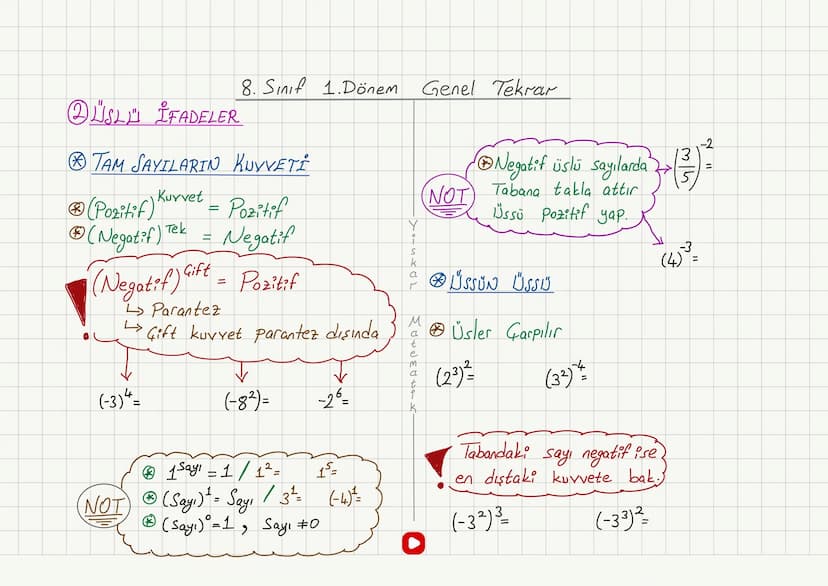 8. Sınıf 1.Dönem Genel Tekrar
② ÜSLÜ İFADELER
⊛ TAM SAYILARIN KUVVETİ
⊛ (Pozitif)^Kuvvet = Pozitif
⊛ (Negatif)^Tek = Negatif
! (Negatif)^Çift = Pozitif
↳ Parantez
↳ Çift kuvvet parantez dışında
(-3)^4=
(-8^2)=
-2^6=
NOT
⊛ 1^Sayı = 1 / 1^2= 1^5=
⊛ (Sayı)^1 = Sayı / 3^1= (-4)^1=
⊛ (Sayı)^0 = 1 , Sayı ≠0
Yiskar Matematik
NOT
⊛ Negatif üslü sayılarda
Tabana takla attır
Üssü pozitif yap.
(3/5)^-2=
(4)^-3=
⊛ ÜSSÜN ÜSSÜ
⊛ Üsler Çarpılır
(2^3)^2=
(3^2)^-4=
! Tabandaki sayı negatif ise
en dıştaki kuvvete bak.
(-3^2)^3=
(-3^3)^2=